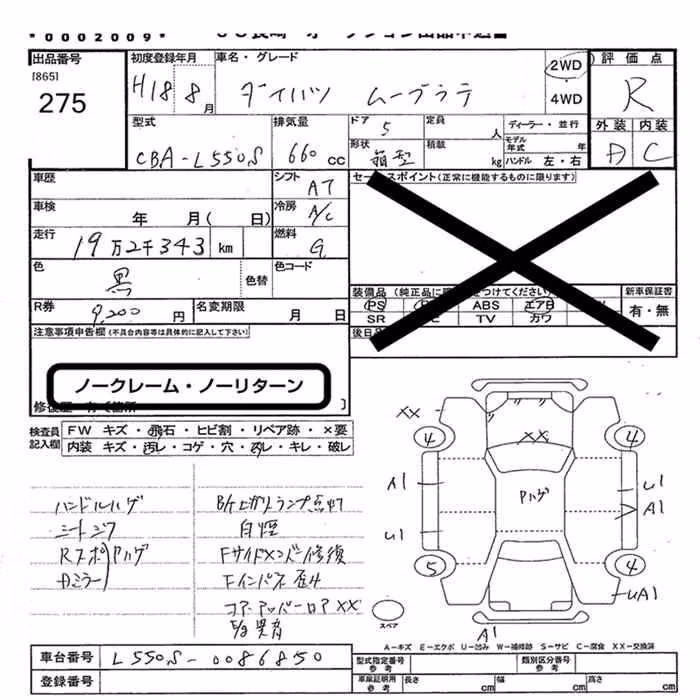 *0002009*
出品番号
[865]
275
初度登録年月
H18 8月
車名・グレード
ダイハツ ムーブラテ
2WD
・
4WD
評価点
R
外装 内装
D C
型式
CBA-L550S
排気量
660 cc
ドア 5
形状 箱型
定員 人
積載 kg
ディーラー・並行
モデル年式 年
ハンドル 左・右
車歴
シフト AT
車検 年 月( 日)
冷房 A/C
走行 19万2千343 km
燃料 G
色 黒 色替
色コード
R券 9,200円
名変期限 月 日
セールスポイント(正常に機能するものに限ります)
装備品
PS
ABS エアB
SR TV カワ
新車保証書
有・無
後日
注意事項申告欄(不具合内容等は具体的に記入して下さい)
ノークレーム・ノーリターン
検査員記入欄
FW キズ・飛石・ヒビ割・リペア跡・×要
内装 キズ・汚レ・コゲ・穴・スレ・キレ・破レ
ハンドルハゲ
シートシワ
Rスポ
Dミラー
Pハゲ
B/Fエカリランプ点灯
白煙
Fサイドメンバー修復
Fインパネ歪み
コアアッパーロアXX
E/g異音
XX
XX
4 4
A1 U1
Pハゲ
A1
U1
5 4
UA1
A1
スペア
A-キズ E-エクボ U-凹み W-補修跡 S-サビ C-腐食 XX-交換済
車台番号 L550S-0086850
登録番号
型式指定番号 参考
類別区分番号 参考
車庫証明用 参考
長さ cm
幅 cm
高さ cm